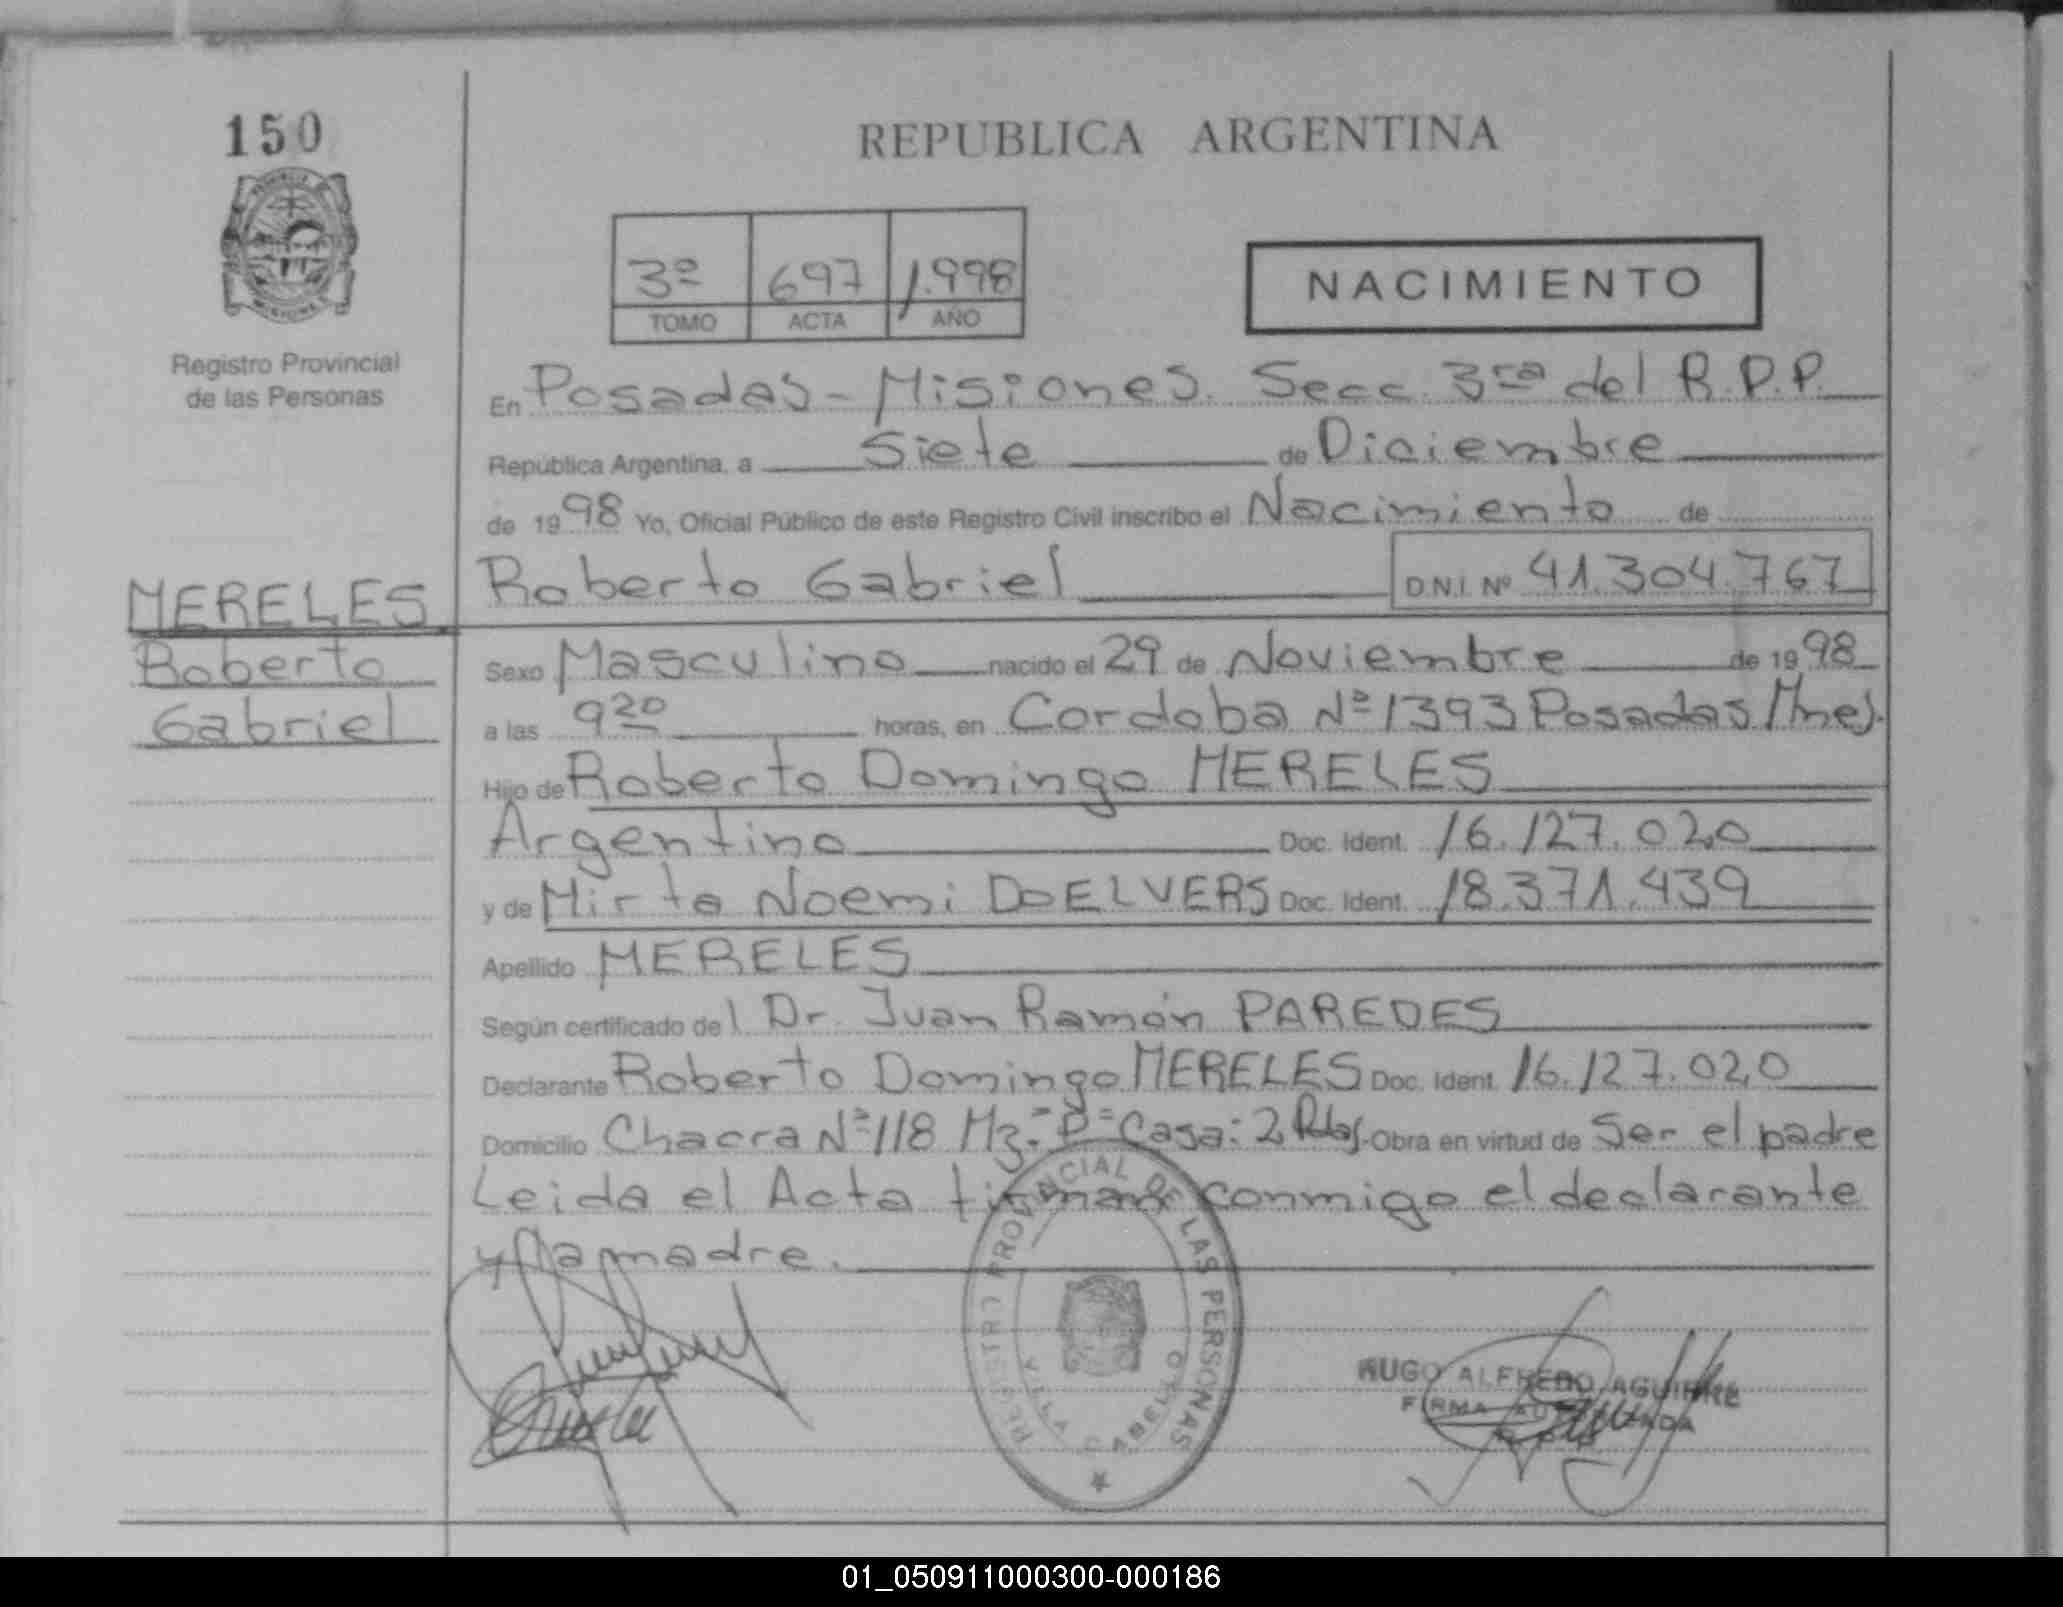 150
REPUBLICA ARGENTINA
3º 697 1.998
TOMO ACTA AÑO
NACIMIENTO
Registro Provincial
de las Personas
En Posadas - Misiones. Secc. 3ra del R.P.P.
República Argentina, a Siete de Diciembre
de 1998 Yo, Oficial Público de este Registro Civil inscribo el Nacimiento de
Roberto Gabriel D.N.I. Nº 41.304.767
MERELES
Roberto
Gabriel
Sexo Masculino nacido el 29 de Noviembre de 1998
a las 9 20 horas, en Cordoba Nº 1393 Posadas Mnes.
Hijo de Roberto Domingo MERELES
Argentino Doc. Ident. 16.127.020
y de Mirta Noemi DOELVERS Doc. Ident. 18.371.439
Apellido MERELES
Según certificado del Dr. Juan Ramón PAREDES
Declarante Roberto Domingo MERELES Doc. Ident. 16.127.020
Domicilio Chacra Nº 118 Mz. Casa: 2 Pdas. Obra en virtud de Ser el padre
Leida el Acta firman conmigo el declarante
y la madre.
REGISTRO PROVINCIAL DE LAS PERSONAS
VILLA CABELLO
HUGO ALFREDO AGUIRRE
FIRMA AUTORIZADA
01_050911000300-000186